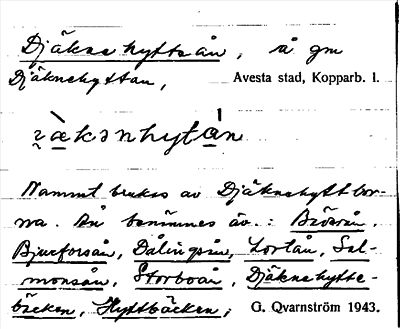 Djäknehytteån, å gm
Djäknehyttan, Avesta stad, Kopparb. l.
Namnet brukas av Djäknehyttbor-
na. Ån benämnes äv.:
Bjurforsån, Dalingsån, Lortån, Sal-
monsån, Storboån, Djäknehytte-
bäcken, Hyttbäcken; G. Qvarnström 1943.